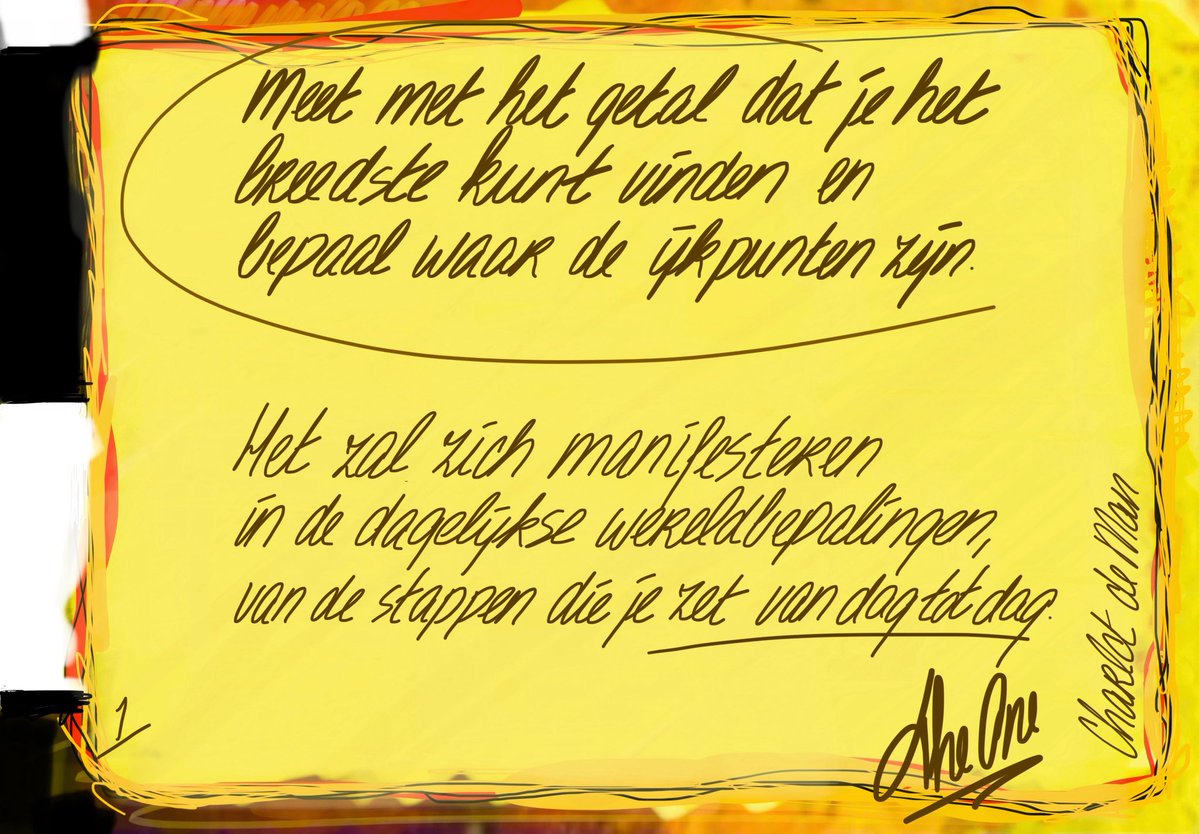 Meet met het getal dat je het
breedste kunt vinden en
bepaal waar de ijkpunten zijn.
Het zal zich manifesteren
in de dagelijkse wereldbepalingen,
van de stappen die je zet van dag tot dag.
The One
Charlot de Man
1